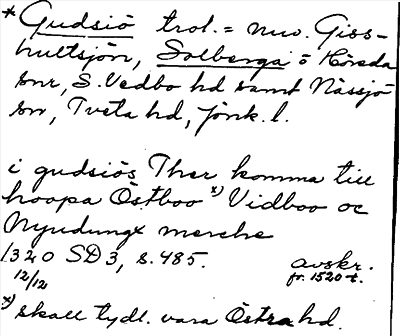 * Gudsiö trol. = nuv. Giss-
hultsjön, Solberga o Höreda
snr, S. Vedbo hd samt Nässjö
sn, Tveta hd, Jönk. l.
i gudsiös Ther komma till
hoopa Östboo x) Vidboo oc
Nyudungx merche
1320 SD 3, s. 485. avskr.
12/12 fr. 1520-t.
x) skall tydl. vara Östra hd.